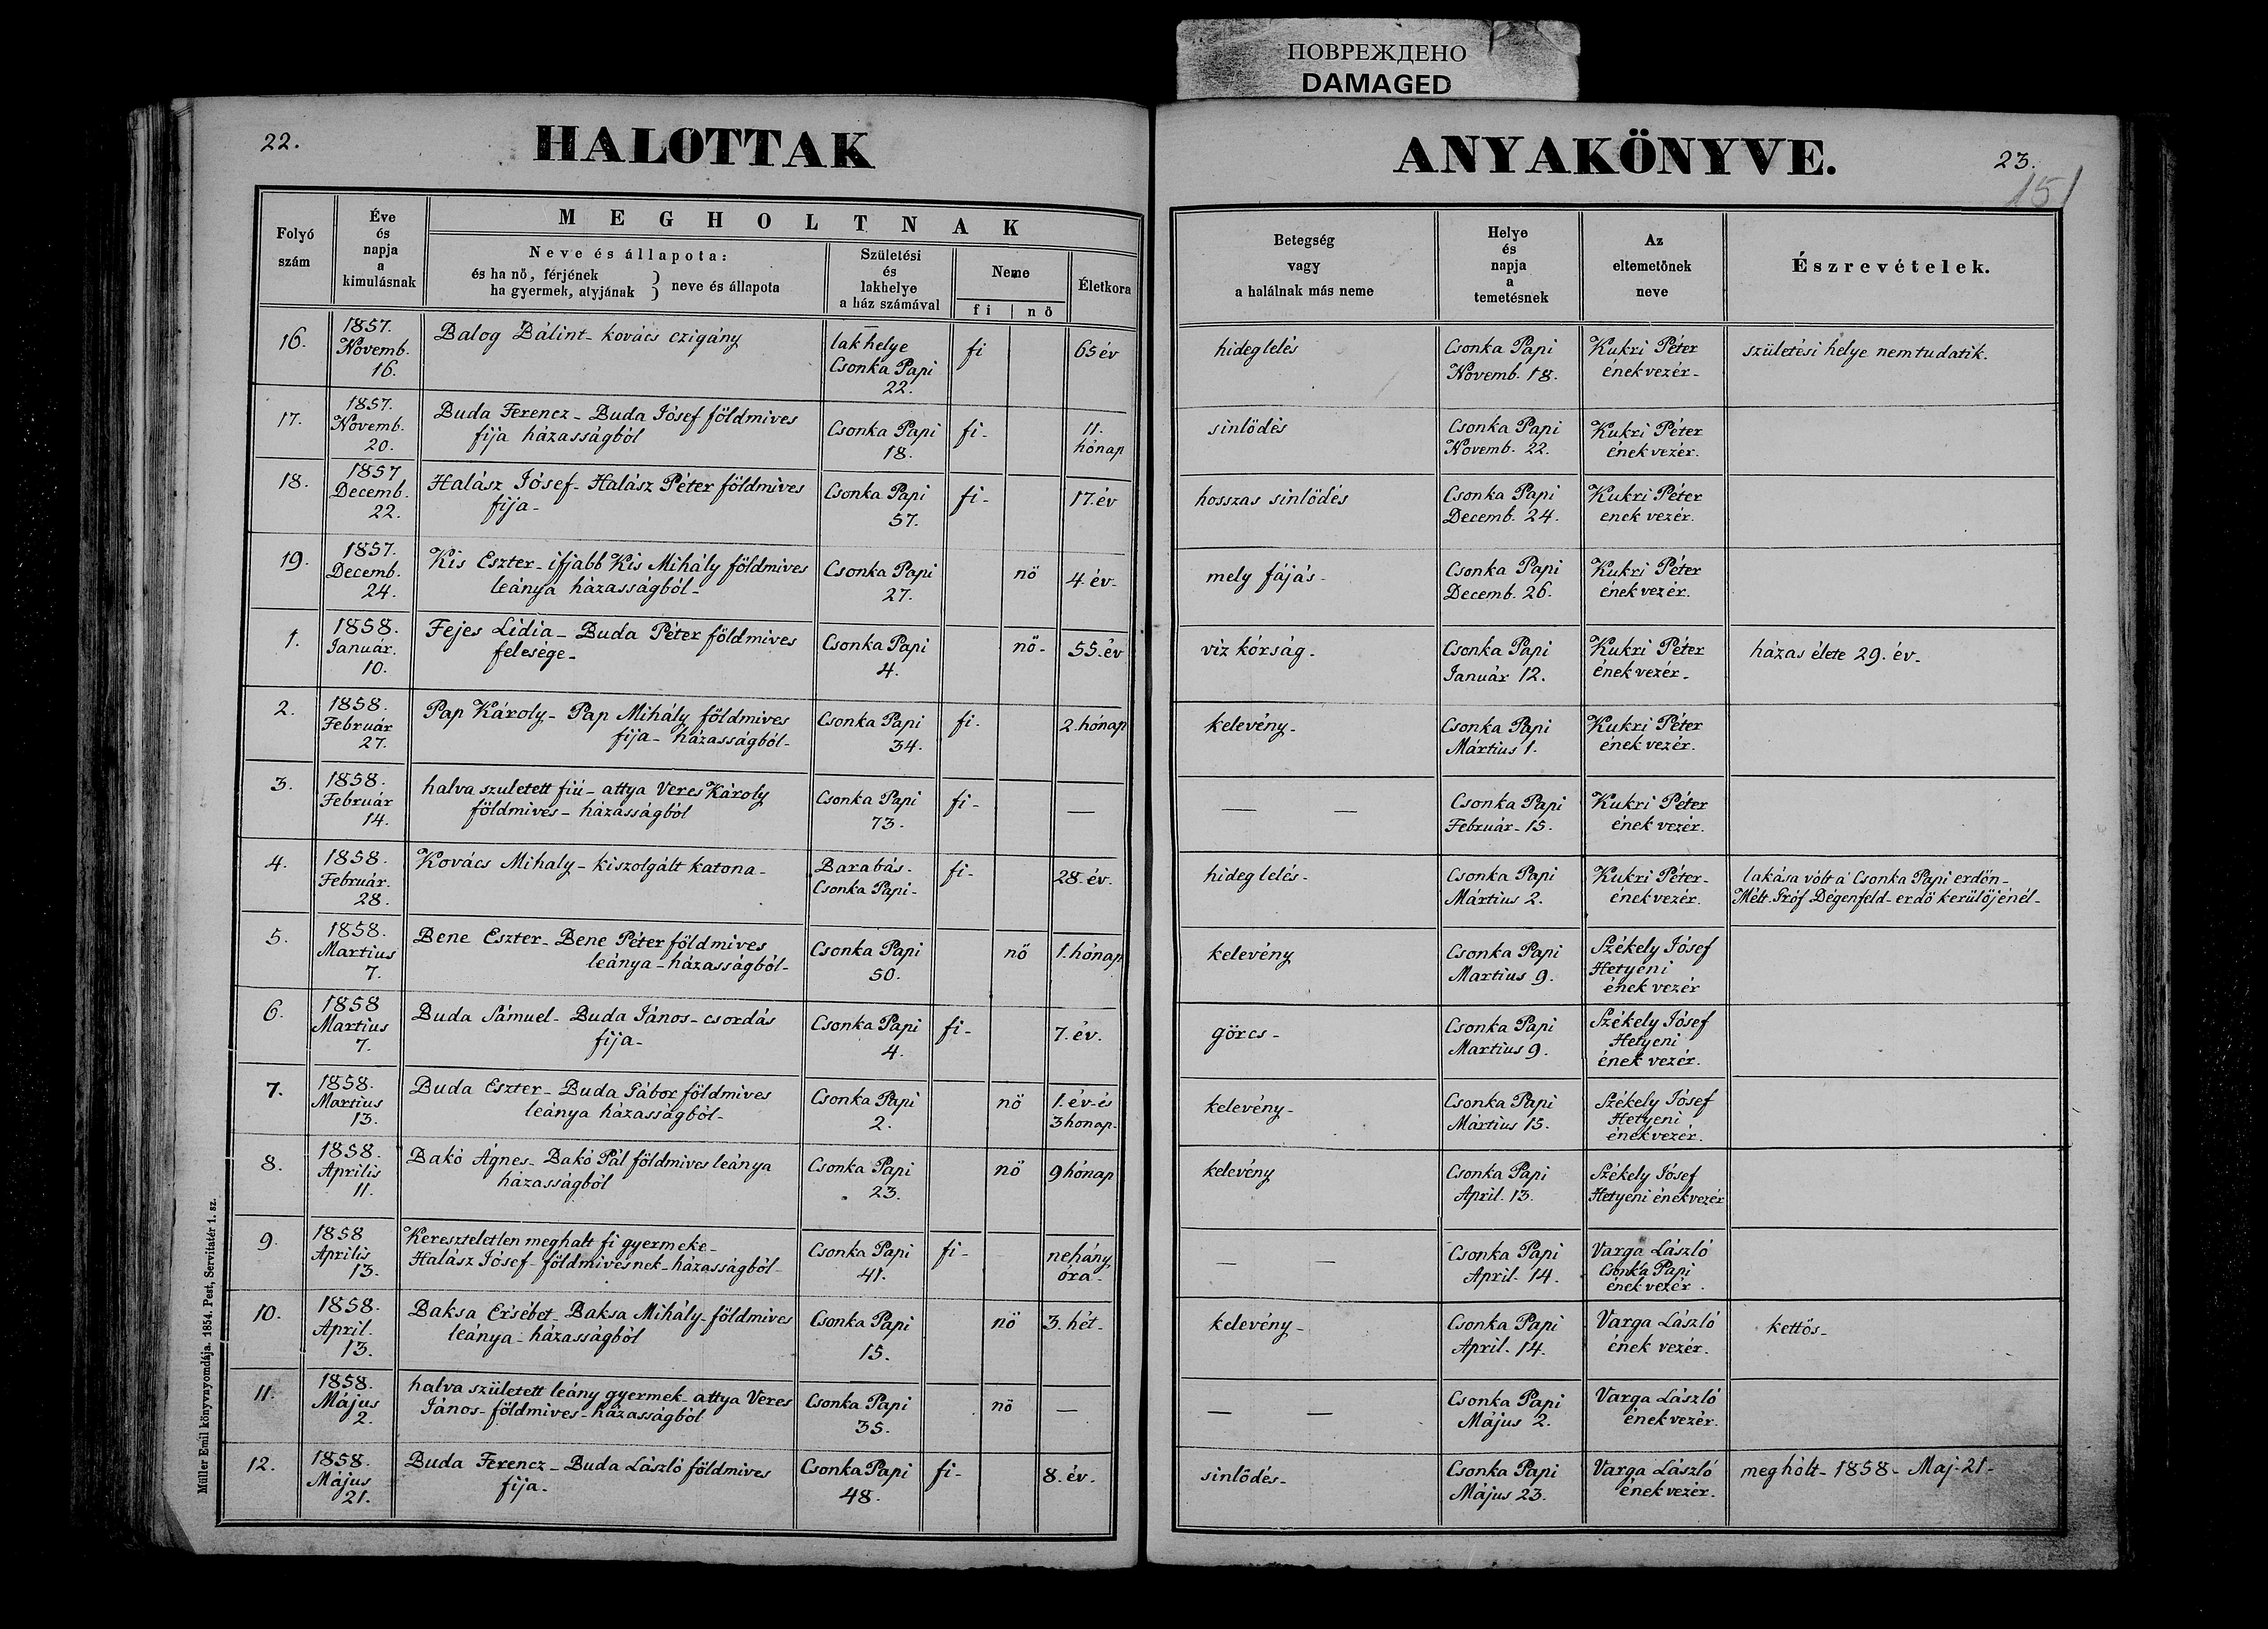 ПОВРЕЖДЕНО
DAMAGED
22.
HALOTTAK
Folyó
szám
Éve
és
napja
a
kimulásnak
MEGHOLTNAK
Neve és állapota:
és ha nő, férjének
ha gyermek, atyjának } neve és állapota
Születési
és
lakhelye
a ház számával
Neme
fi | nő
Életkora
16.
1857.
Novemb.
16.
Balog Bálint - kovács czigány
lakhelye
Csonka Papi
22.
fi
65 év
17.
1857.
Novemb.
20.
Buda Ferencz - Buda Jósef földmives
fija házasságból
Csonka Papi
18.
fi-
11.
hónap
18.
1857
Decemb.
22.
Halász Jósef - Halász Péter földmives
fija-
Csonka Papi
57.
fi-
17. év
19.
1857.
Decemb.
24.
Kis Eszter - ifjabb Kis Mihály földmives
leánya házasságból-
Csonka Papi
27.
nö
4. év-
1.
1858.
Január.
10.
Fejes Lidia - Buda Péter földmives
felesége-
Csonka Papi
4.
nö-
55. év
2.
1858.
Február
27.
Pap Károly - Pap Mihály földmives
fija - házasságból-
Csonka Papi
34.
fi-
2. hónap
3.
1858.
Február
14.
halva szuletett fiú - attya Veres Károly
földmives - házasságból
Csonka Papi
73.
fi-
—
4.
1858.
Február.
28.
Kovács Mihaly - kiszolgált katona-
Barabás.
Csonka Papi-
fi-
28. év.
5.
1858.
Martius
7.
Bene Eszter - Bene Péter földmives
leánya - házasságból-
Csonka Papi
50.
nö
1. hónap
6.
1858
Martius
7.
Buda Sámuel - Buda János - csordás
fija-
Csonka Papi
4.
fi-
7. év.
7.
1858.
Martius
13.
Buda Eszter - Buda Gábor földmives
leánya házasságból-
Csonka Papi
2.
nö
1. év-és
3 honap.
8.
1858.
Aprilis
11.
Bakó Ágnes - Bakó Pál földmives leánya
házasságból
Csonka Papi
23.
nö
9 hónap
9.
1858
Aprilis
13.
Kereszteletlen meghalt fi gyermeke-
Halász Jósef - földmivesnek - házasságból-
Csonka Papi
41.
fi-
nehány
óra-
10.
1858.
April.
13.
Baksa Ersébet - Baksa Mihály - földmives
leánya - házasságból
Csonka Papi
15.
nö
3. hét-
11.
1858.
Május
2.
halva született leány gyermek - attya Veres
János - földmives - házasságból
Csonka Papi
35.
nö
—
12.
1858.
Május
21.
Buda Ferencz - Buda László földmives
fija-
Csonka Papi
48.
fi-
8. év.
Müller Emil könyvnyomdája. 1854. Pest, Servitatér 1. sz.
ANYAKÖNYVE.
23.
151
Betegség
vagy
a halálnak más neme
Helye
és
napja
a
temetésnek
Az
eltemetőnek
neve
Észrevételek.
hideglelés
Csonka Papi
Novemb. 18.
Kukri Péter
enekvezér-
születési helye nem tudatik.
sinlödés
Csonka Papi
Novemb. 22.
Kukri Péter
ének vezér.
hosszas sinlödés
Csonka Papi
Decemb. 24.
Kukri Péter
enek vezér.
mely fájás-
Csonka Papi
Decemb. 26.
Kukri Péter
ének vezér.
viz kórság-
Csonka Papi
Január 12.
Kukri Péter
ének vezér.
házas élete 29. év-
kelevény-
Csonka Papi
Mártius 1.
Kukri Péter
ének vezér.
— —
Csonka Papi
Február- 15.
Kukri Péter
ének vezér.
hideg lelés-
Csonka Papi
Mártius 2.
Kukri Péter-
ének vezér.
lakása vólt a' Csonka Papi erdőn-
Mélt. Gróf Dégenfeld - erdö kerülöjénél-
kelevény
Csonka Papi
Martius 9.
Székely Jósef
Hetyeni
ének vezér
görcs-
Csonka Papi
Martius 9.
Székely Jósef
Hetyeni
ének vezér.
kelevény-
Csonka Papi
Mártius 15.
Székely Jósef
Hetyeni
énekvezér.
kelevény
Csonka Papi
April. 13.
Székely Jósef
Hetyeni énekvezér
— —
Csonka Papi
April- 14.
Varga László
Csonka Papi
ének vezér.
kelevény-
Csonka Papi
April. 14.
Varga László
ének vezér.
kettős-
— —
Csonka Papi
Május 2.
Varga László
ének vezér.
sinlödés-
Csonka Papi
Május 23.
Varga László
ének vezér.
meghólt - 1858 - Maj - 21-